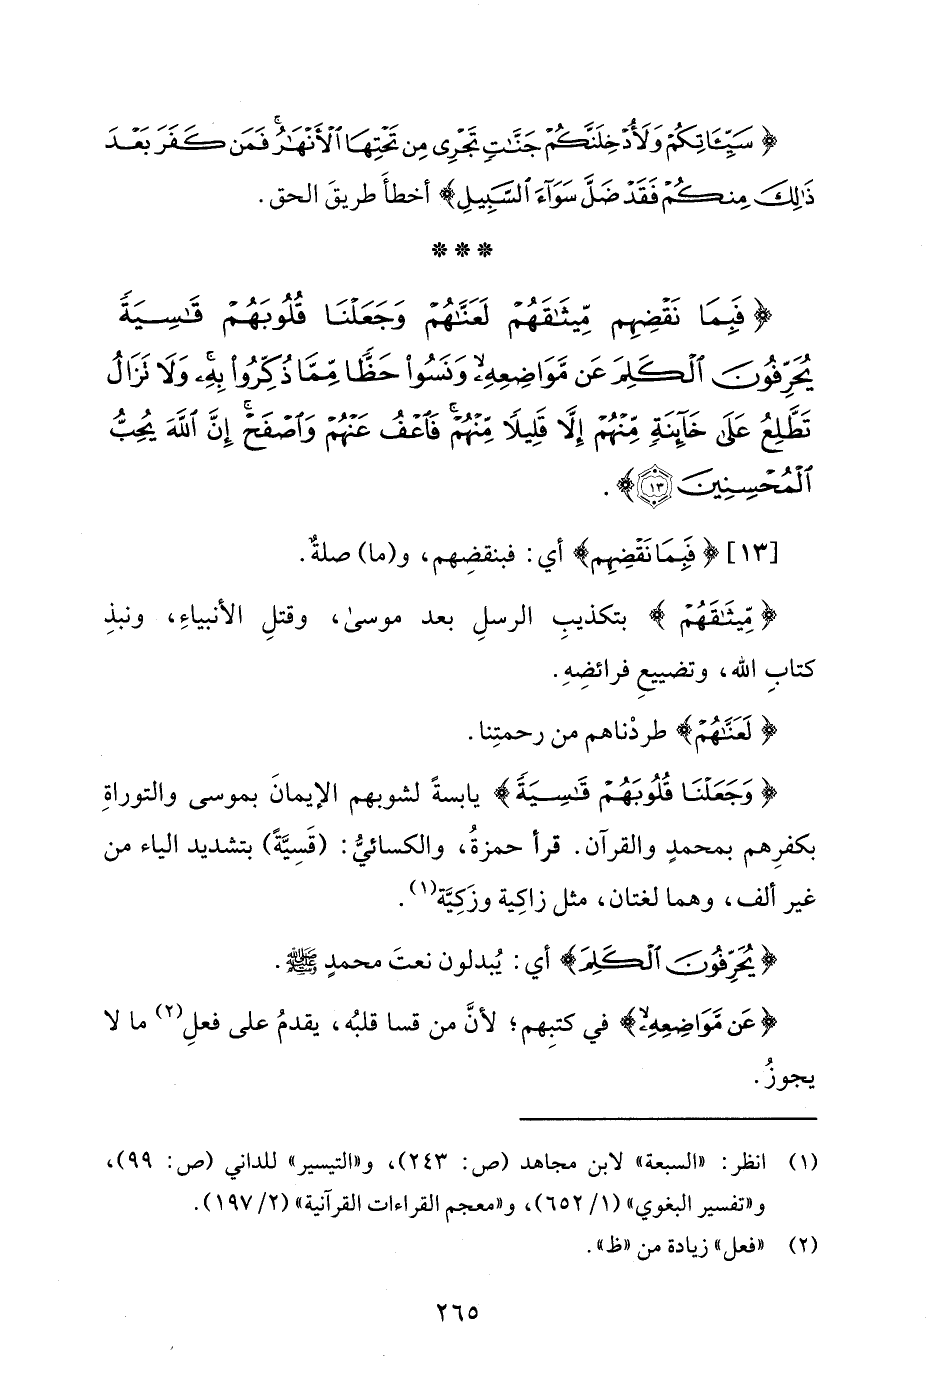 ﴿ سَيِّـَٔاتِكُمْ وَلَأُدْخِلَنَّكُمْ جَنَّٰتٍ تَجْرِى مِن تَحْتِهَا ٱلْأَنْهَٰرُ ۚ فَمَن كَفَرَ بَعْدَ
ذَٰلِكَ مِنكُمْ فَقَدْ ضَلَّ سَوَآءَ ٱلسَّبِيلِ﴾ أخطأَ طريقَ الحق.
* * *
﴿ فَبِمَا نَقْضِهِم مِّيثَٰقَهُمْ لَعَنَّٰهُمْ وَجَعَلْنَا قُلُوبَهُمْ قَٰسِيَةً
يُحَرِّفُونَ ٱلْكَلِمَ عَن مَّوَاضِعِهِۦ ۙ وَنَسُوا۟ حَظًّا مِّمَّا ذُكِّرُوا۟ بِهِۦ ۚ وَلَا تَزَالُ
تَطَّلِعُ عَلَىٰ خَآئِنَةٍ مِّنْهُمْ إِلَّا قَلِيلًا مِّنْهُمْ ۖ فَٱعْفُ عَنْهُمْ وَٱصْفَحْ ۚ إِنَّ ٱللَّهَ يُحِبُّ
ٱلْمُحْسِنِينَ ١٣﴾.
[١٣] ﴿ فَبِمَا نَقْضِهِم﴾ أي: فبنقضِهم، و(ما) صلةٌ.
﴿ مِّيثَٰقَهُمْ ﴾ بتكذيبِ الرسلِ بعد موسىٰ، وقتلِ الأنبياءِ، ونبذِ
كتابِ الله، وتضييعِ فرائضِهِ.
﴿ لَعَنَّٰهُمْ﴾ طردْناهم من رحمتِنا.
﴿ وَجَعَلْنَا قُلُوبَهُمْ قَٰسِيَةً ﴾ يابسةً لشوبهم الإيمانَ بموسى والتوراةِ
بكفرِهم بمحمدٍ والقرآن. قرأ حمزةُ، والكسائيُّ: (قَسِيَّةً) بتشديد الياء من
غير ألف، وهما لغتان، مثل زاكِية وزَكِيَّة(١).
﴿ يُحَرِّفُونَ ٱلْكَلِمَ﴾ أي: يُبدلون نعتَ محمدٍ ﷺ.
﴿ عَن مَّوَاضِعِهِۦ ۙ﴾ في كتبِهم؛ لأنَّ من قسا قلبُه، يقدمُ على فعلِ(٢) ما لا
يجوزُ.
(١) انظر: «السبعة» لابن مجاهد (ص: ٢٤٣)، و«التيسير» للداني (ص: ٩٩)،
و«تفسير البغوي» (١/ ٦٥٢)، و«معجم القراءات القرآنية» (٢/ ١٩٧).
(٢) «فعل» زيادة من «ظ».
٢٦٥